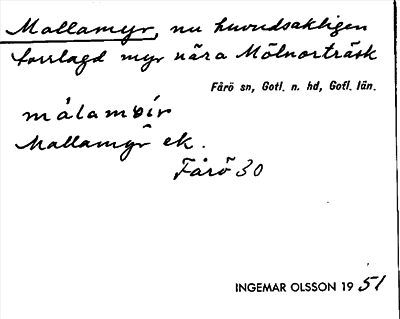 Mallamyr, nu huvudsakligen
torrlagd myr nära Mölnorträsk
Fårö sn, Gotl. n. hd, Gotl. län.
målamvír
Mallamyr ek.
Fårö 30
INGEMAR OLSSON 1951